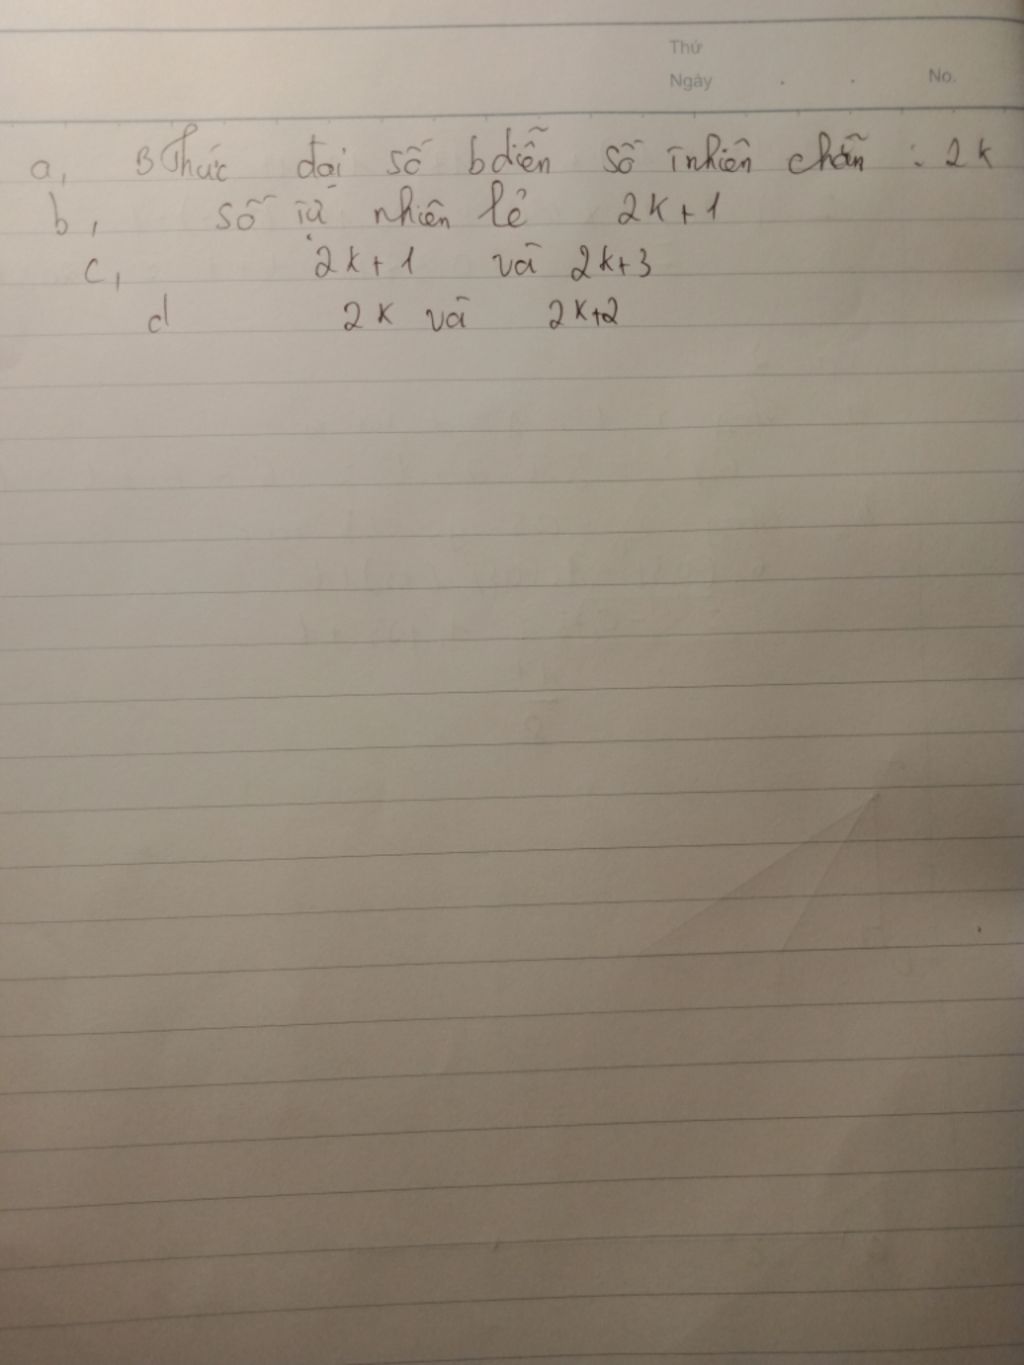 Thứ
Ngày . . No.
a, BThức đại số bdiễn số tnhiên chẵn : 2k
b, số tự nhiên lẻ 2k+1
c, 2k+1 và 2k+3
d 2k và 2k+2